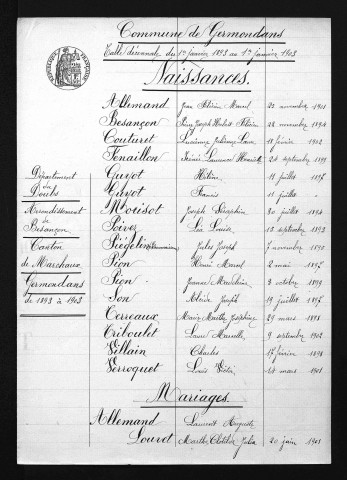 Commune de Germondans
Table décennale du 1er janvier 1893 au 1er janvier 1903
Naissances.
Allemand Jean Marcel 22 novembre 1901
Besançon Joseph 28 novembre 1894
Couturet Lucienne Laure 18 février 1902
Fenaillon Laurence Henriette 24 septembre 1899
Guyot Hélène 11 juillet 1897
Guyot Francis 11 juillet "
Mouisot Joseph Séraphin 30 juillet 1894
Poives Louise 13 septembre 1893
Jules Joseph 7 novembre
Pion Henri Marcel 2 mai 1897
Pion Jeanne Madeleine 3 octobre 1899
Son Joseph 19 juillet 1897
Cerreaux Marie Marthe Joséphine 29 mars 1898
Triboulet Laure Marcelle 9 septembre 1902
Villain Charles 17 février 1898
Verroquet Louis 14 mars 1901
Département
du
Doubs
Arrondissement
de
Besançon
Canton
de Marchaux
Germondans
de 1893 à 1903
Mariages.
Allemand Laurent Auguste
Louvet Marthe Clotilde Julia 20 juin 1901